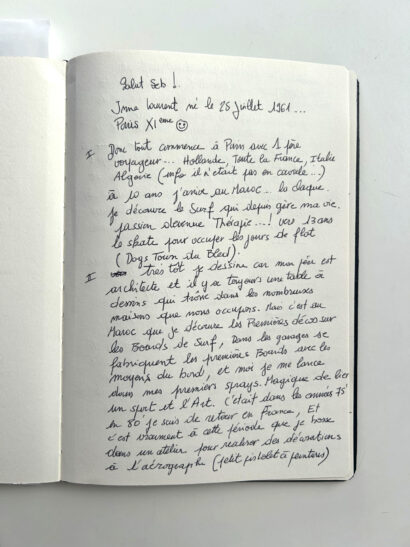 Salut Seb !
Jrme laurent né le 25 Juillet 1961 ...
Paris XIème ☺
I Donc tout commence à Paris avec 1 père
voyageur... Hollande, Toute la France, Italie
Algérie (info il n'était pas en cavale...)
à 10 ans j'arrive au Maroc... la claque.
je découvre le Surf qui depuis gère ma vie.
passion devenue Thérapie...! vers 13 ans
le skate pour occuper les jours de flat
(Dogs Town du Bled).
II très tôt je dessine car mon père est
architecte et il y a toujours une table à
dessins qui trône dans les nombreuses
maisons que nous occupons. Mais c'est au
Maroc que je découvre les Premières décos sur
les Boards de Surf, Dans les garages se
fabriquent les premières Boards avec les
moyens du bord, et moi je me lance
dans mes premiers sprays. Magique de lier
un sport et l'Art. C'était dans les années 75'
en 80' je suis de retour en France, Et
c'est vraiment à cette période que je bosse
dans un atelier pour realiser des décorations
à l'aérographe (petit pistolet à peintures)